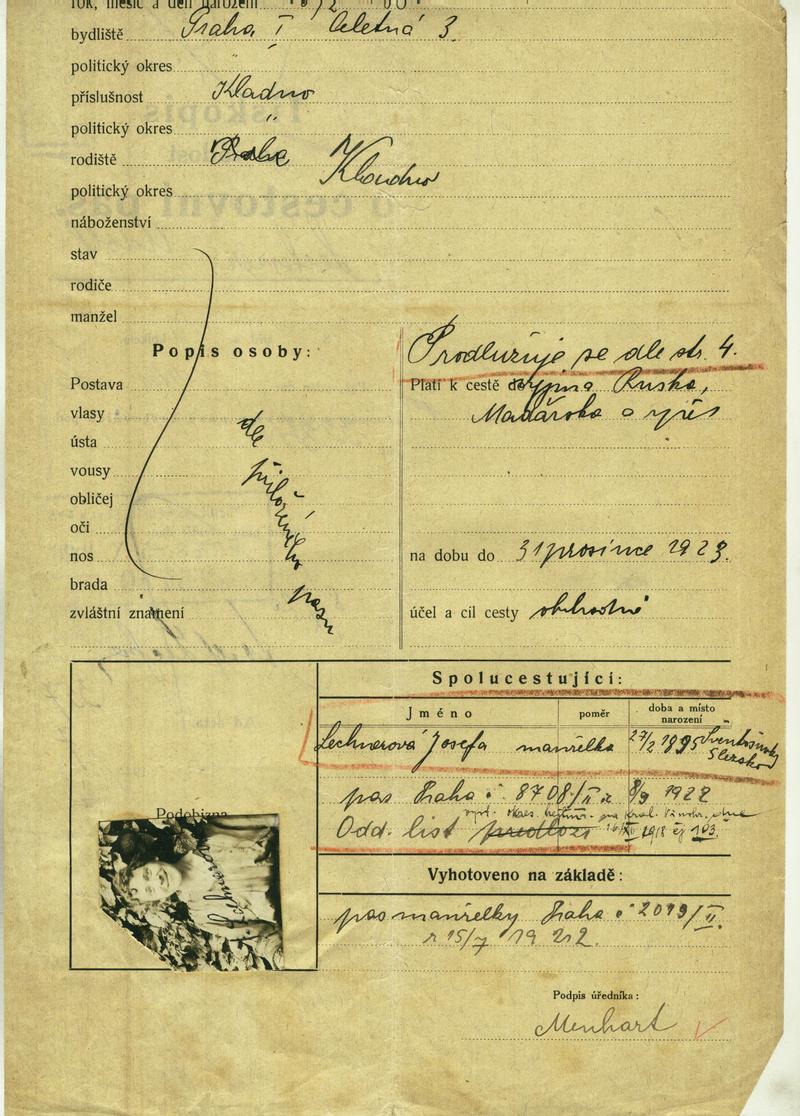 rok, měsíc a den narození
bydliště Praha I Celetná 3.
politický okres
příslušnost Kladno
politický okres "
rodiště Praha Kladno
politický okres
náboženství
stav
rodiče
manžel
Popis osoby:
Postava
vlasy
ústa
vousy
obličej
oči
nos
brada
zvláštní znamení
dle
přiloženého
pasu
Prodlužuje se dle str. 4.
Platí k cestě vyjma Ruska,
Maďarska a
na dobu do 31 prosince 1923.
účel a cíl cesty obchodně
Spolucestující:
Jméno poměr doba a místo narození
Lechnerová Josefa manželka 27/2 1895 Slezsko
pas Praha č. 8708/II z 8/9 1922
Odd. list předloží 1918 čj 103.
Podobizna
Vyhotoveno na základě:
pas manželky Praha č. 2019/II.
z 15/7 1922.
Podpis úředníka:
Menhart